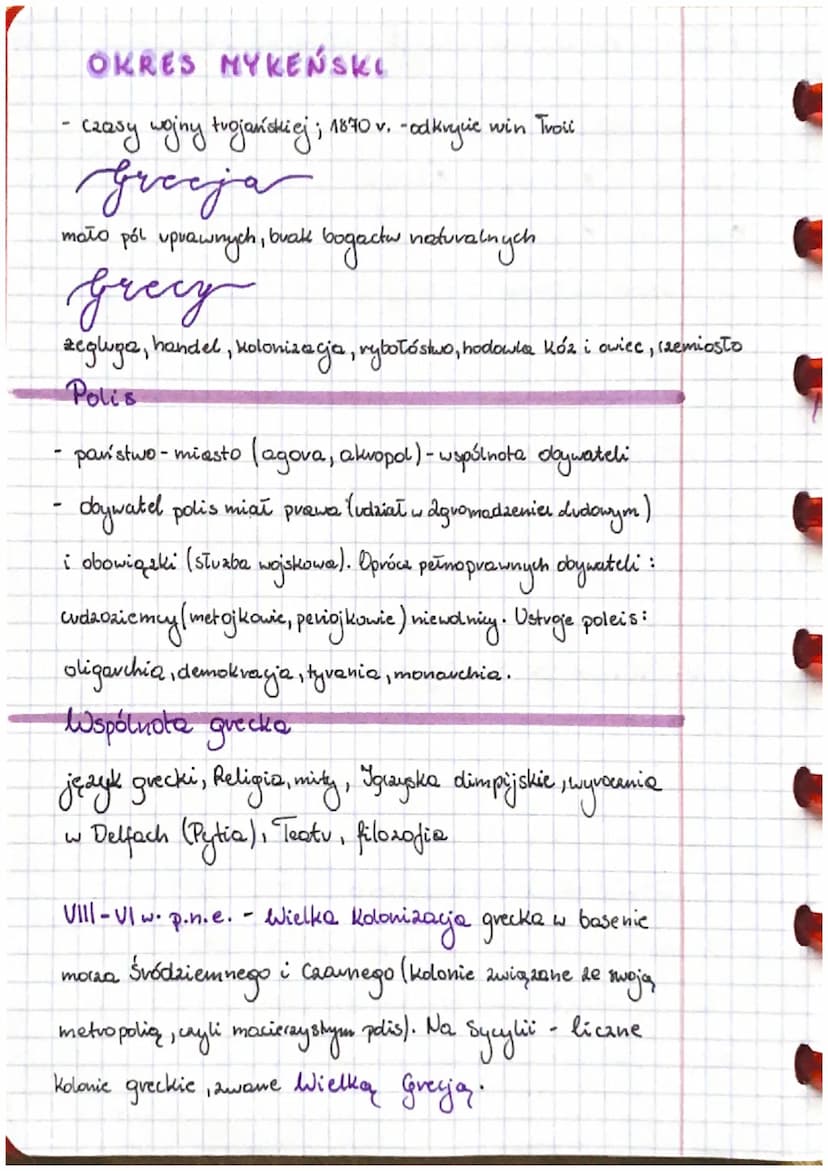 OKRES MYKEŃSKI
- czasy wojny trojańskiej; 1870 r. - odkrycie ruin Troii
Grecja
mało pól uprawnych, brak bogactw naturalnych
Grecy
żegluga, handel, kolonizacja, rybołóstwo, hodowla kóz i owiec, rzemiosło
Polis
- państwo-miasto (agora, akropol) - wspólnota obywateli
- obywatel polis miał prawa (udział w Zgromadzeniu Ludowym)
i obowiązki (służba wojskowa). Oprócz pełnoprawnych obywateli:
cudzoziemcy (metojkowie, periojkowie) niewolnicy. Ustroje poleis:
oligarchia, demokracja, tyrania, monarchia.
Wspólnota grecka
język grecki, Religia, mity, Igrzyska olimpijskie, wyrocznia
w Delfach (Pytia), Teatr, filozofia
VIII-VI w. p.n.e. - Wielka Kolonizacja grecka w basenie
morza Śródziemnego i Czarnego (kolonie związane ze swoją
metropolią, czyli macierzystym polis). Na Sycylii - liczne
kolonie greckie, zwane Wielką Grecją.